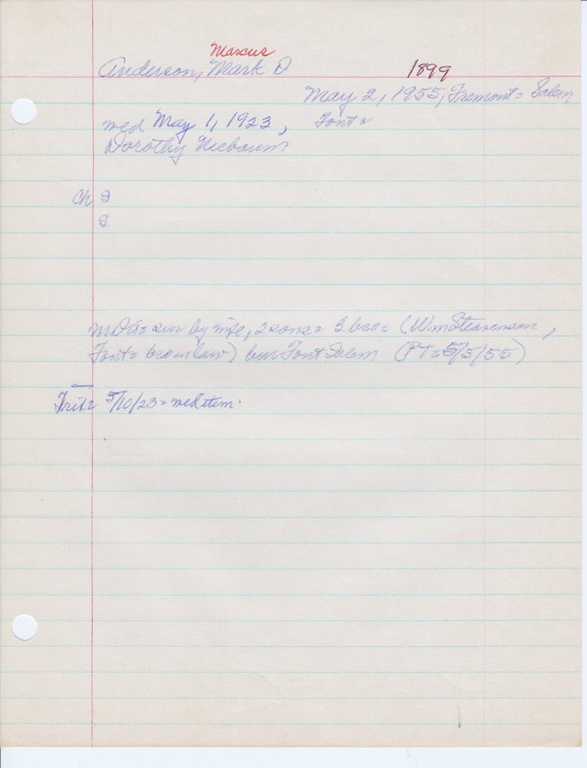 Marcus
Anderson, Mark D 1899
May 2, 1955, Fremont = Salem
med May 1, 1923, Font =
Dorothy Niebaum
Ch 2
2
sur by mfe, 2 sons = 3 bro = (Wm Stevenson,
Font = bro in law) bur Font Salem (PT = 5/5/55)
5/10/23 = med item.